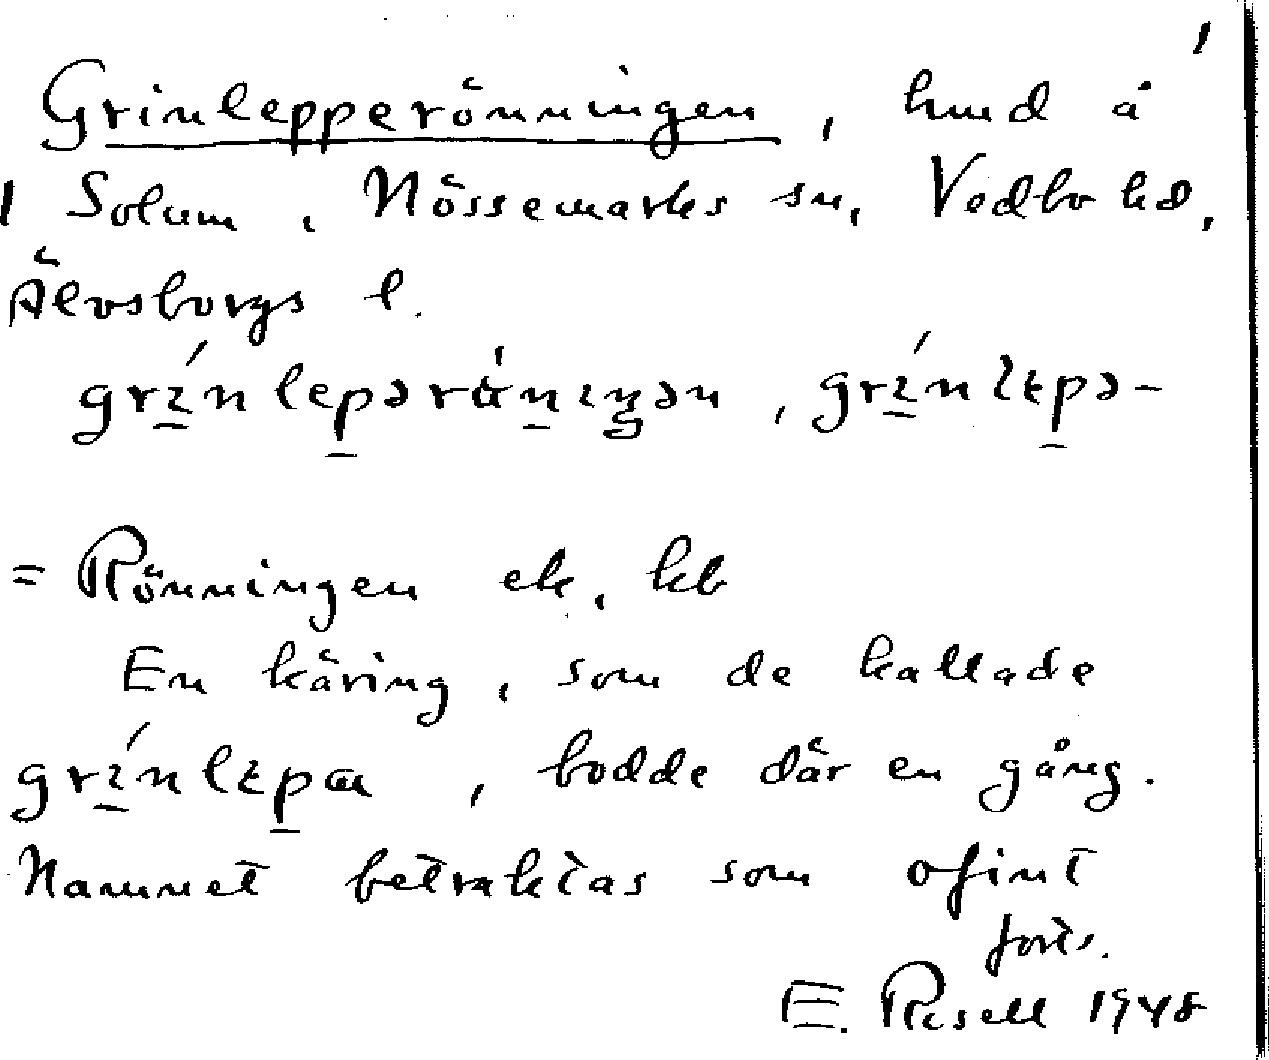 Grinlepperönningen, hmd å
1 Solum, Nössemarks sn, Vedbo hd,
Älvsborgs l.
grɪ́n lepərɑ́nɪŋən, grɪ́nlɛpə-
= Rönningen ek, kb
En käring, som de kallade
grɪ́nlɛpɑ, bodde där en gång.
Namnet betraktas som ofint
forts.
E. Rosell 1948